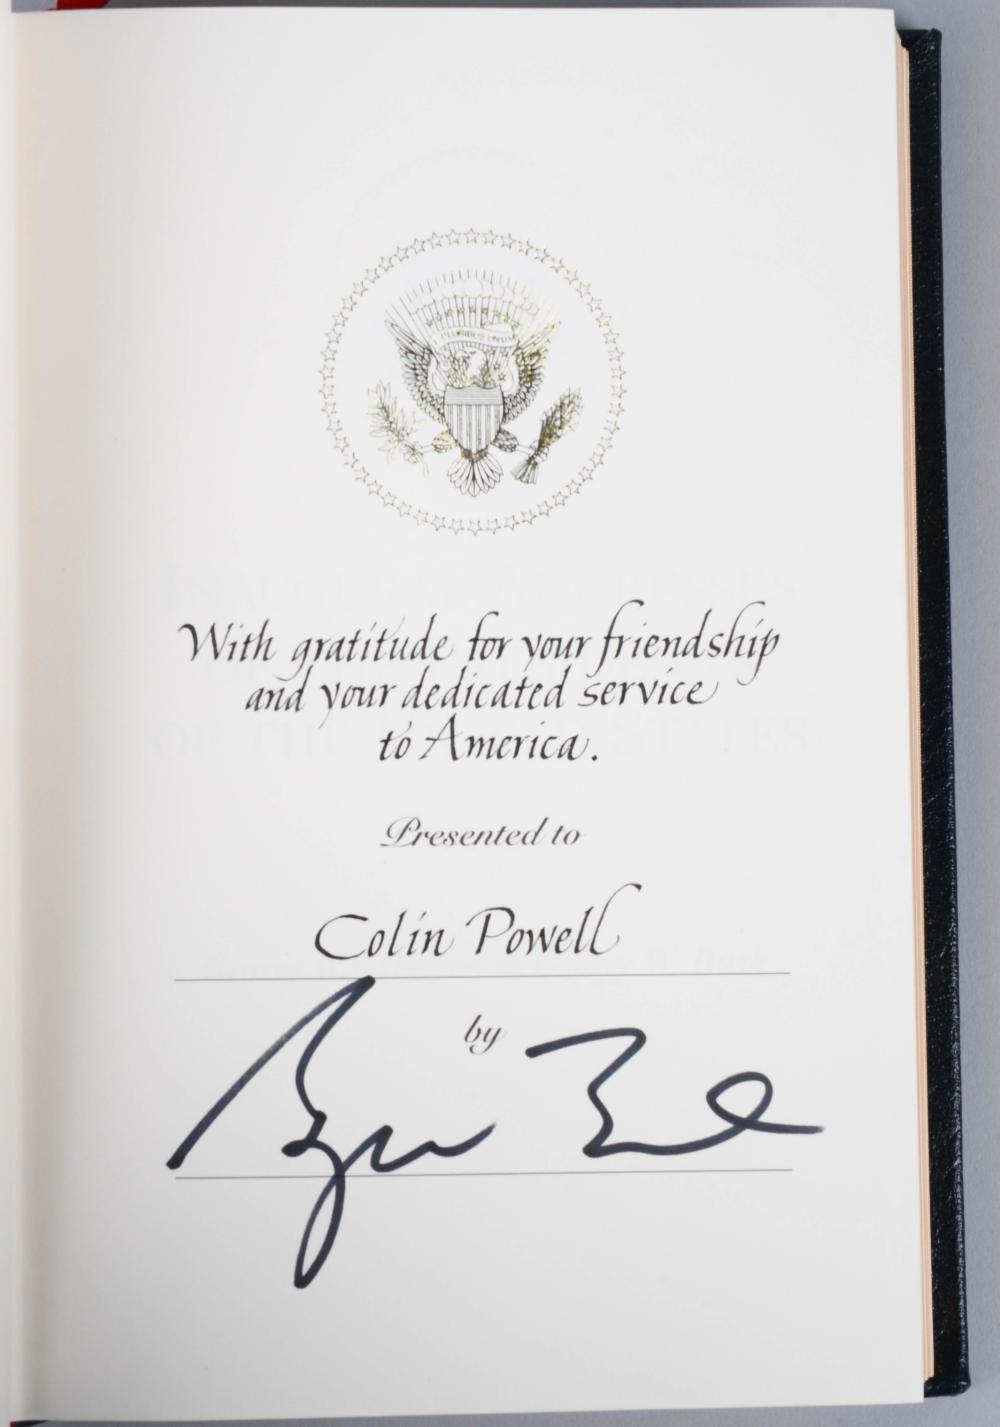 E PLURIBUS UNUM
With gratitude for your friendship
and your dedicated service
to America.
Presented to
Colin Powell
by